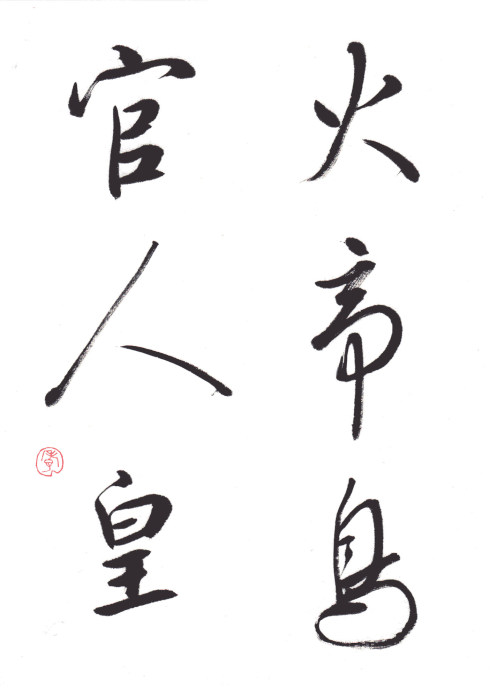 火帝鳥
官人皇